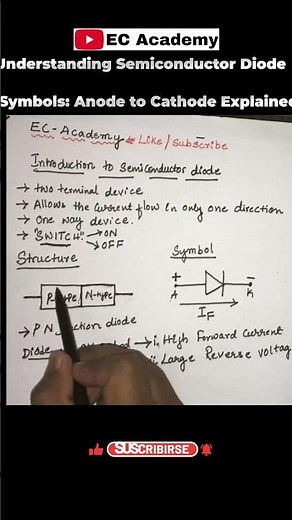 EC Academy
Understanding Semiconductor Diode
Symbols: Anode to Cathode Explained
EC-Academy ← Like/Subscribe
Introduction to Semiconductor diode
→ Two terminal device
→ Allows the current flow in only one direction
→ One way device.
→ "SWITCH" → ON
→ OFF
Structure
Symbol
P-type N-type
+ −
A K
I_F
→ PN junction diode
Diode → i, High Forward Current
ii, Large Reverse Voltag
SUSCRIBIRSE